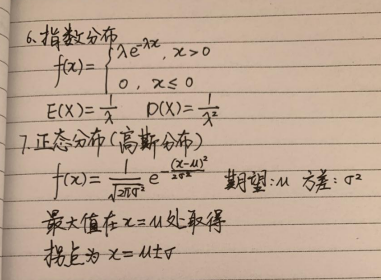 6.指数分布
f(x)={λe^{-λx}, x>0
0, x≤0
E(X)=1/λ D(X)=1/λ²
7.正态分布(高斯分布)
f(x)=1/√(2πσ²) e^{-(x-μ)²/2σ²} 期望:μ 方差:σ²
最大值在x=μ处取得
拐点为x=μ±σ